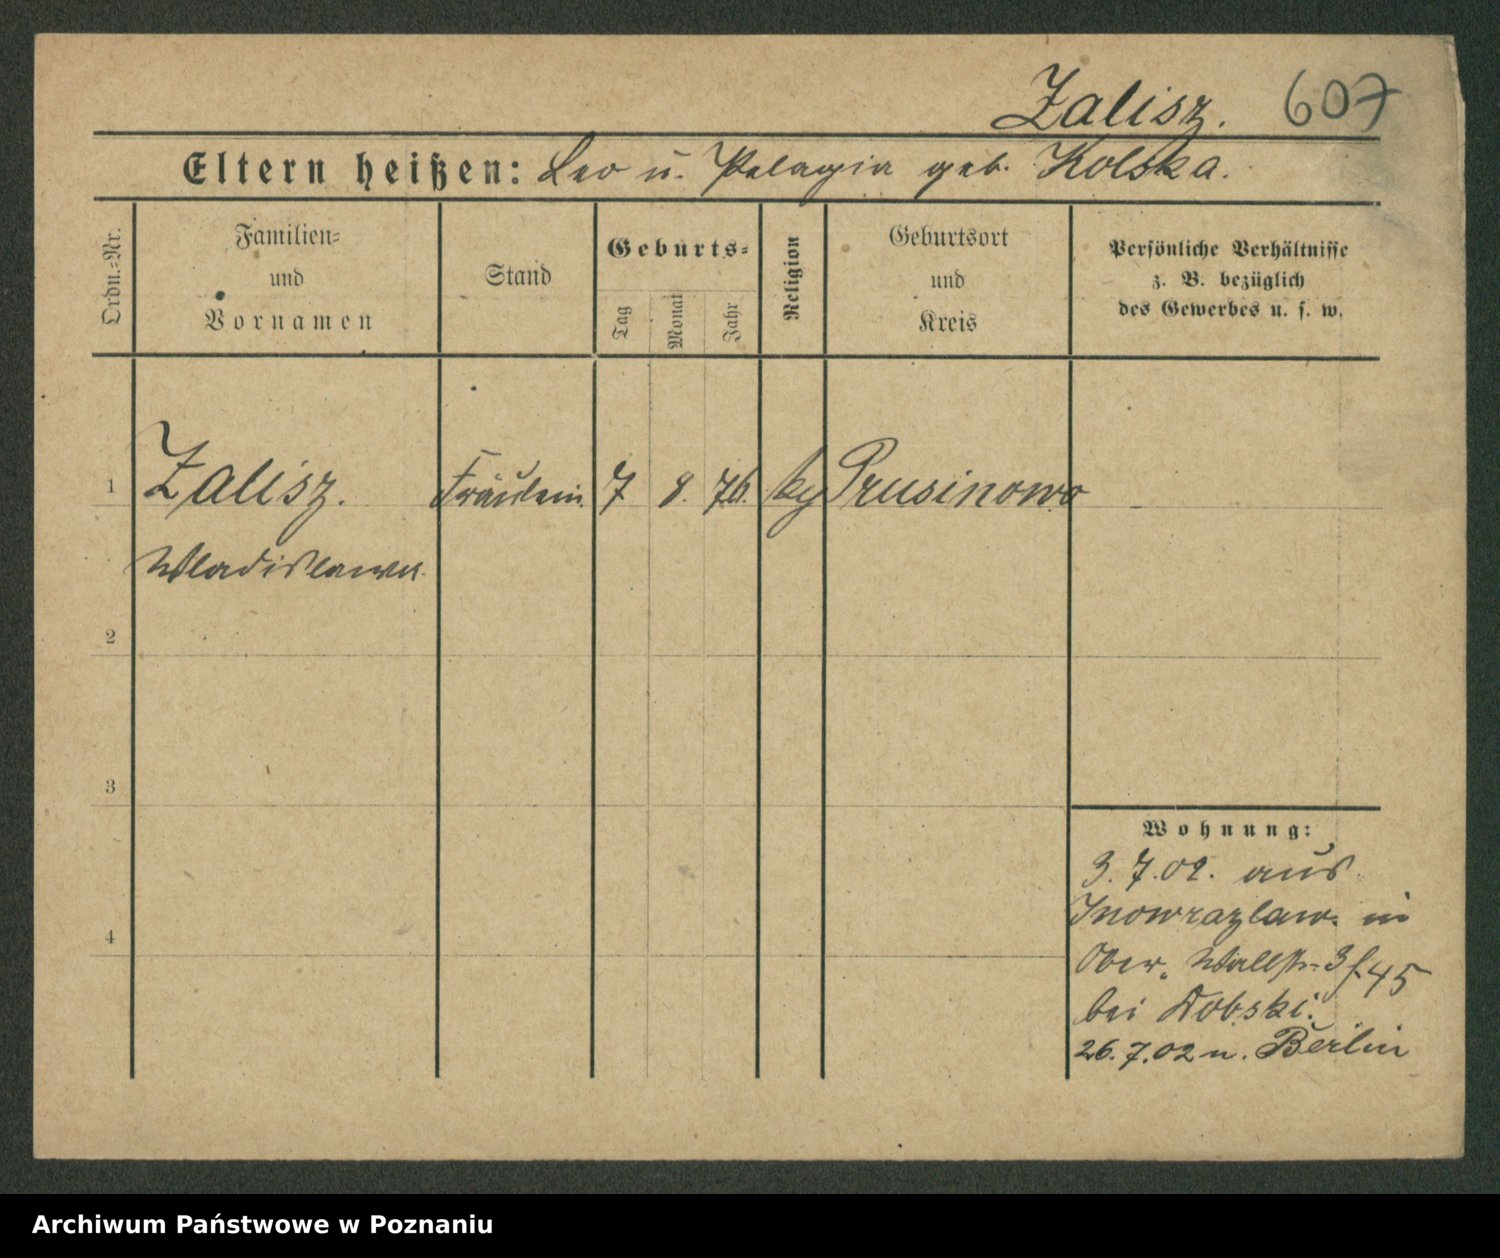 Zalisz. 607
Eltern heißen: Leo u. Pelagia geb. Kolska.
Ordn.-Nr.
Familien-
und
Vornamen
Stand
Geburts-
Tag
Monat
Jahr
Religion
Geburtsort
und
Kreis
Persönliche Verhältnisse
z. B. bezüglich
des Gewerbes u. s. w.
1 Zalisz. Fräulein 7 8. 76. Prusinowo
Wladislawa.
2
3
4
Wohnung:
3. 7. 02. aus
Inowrazlaw. in
Ober. Wallstr. 3
bei Dobski.
26. 7. 02 n. Berlin
Archiwum Państwowe w Poznaniu